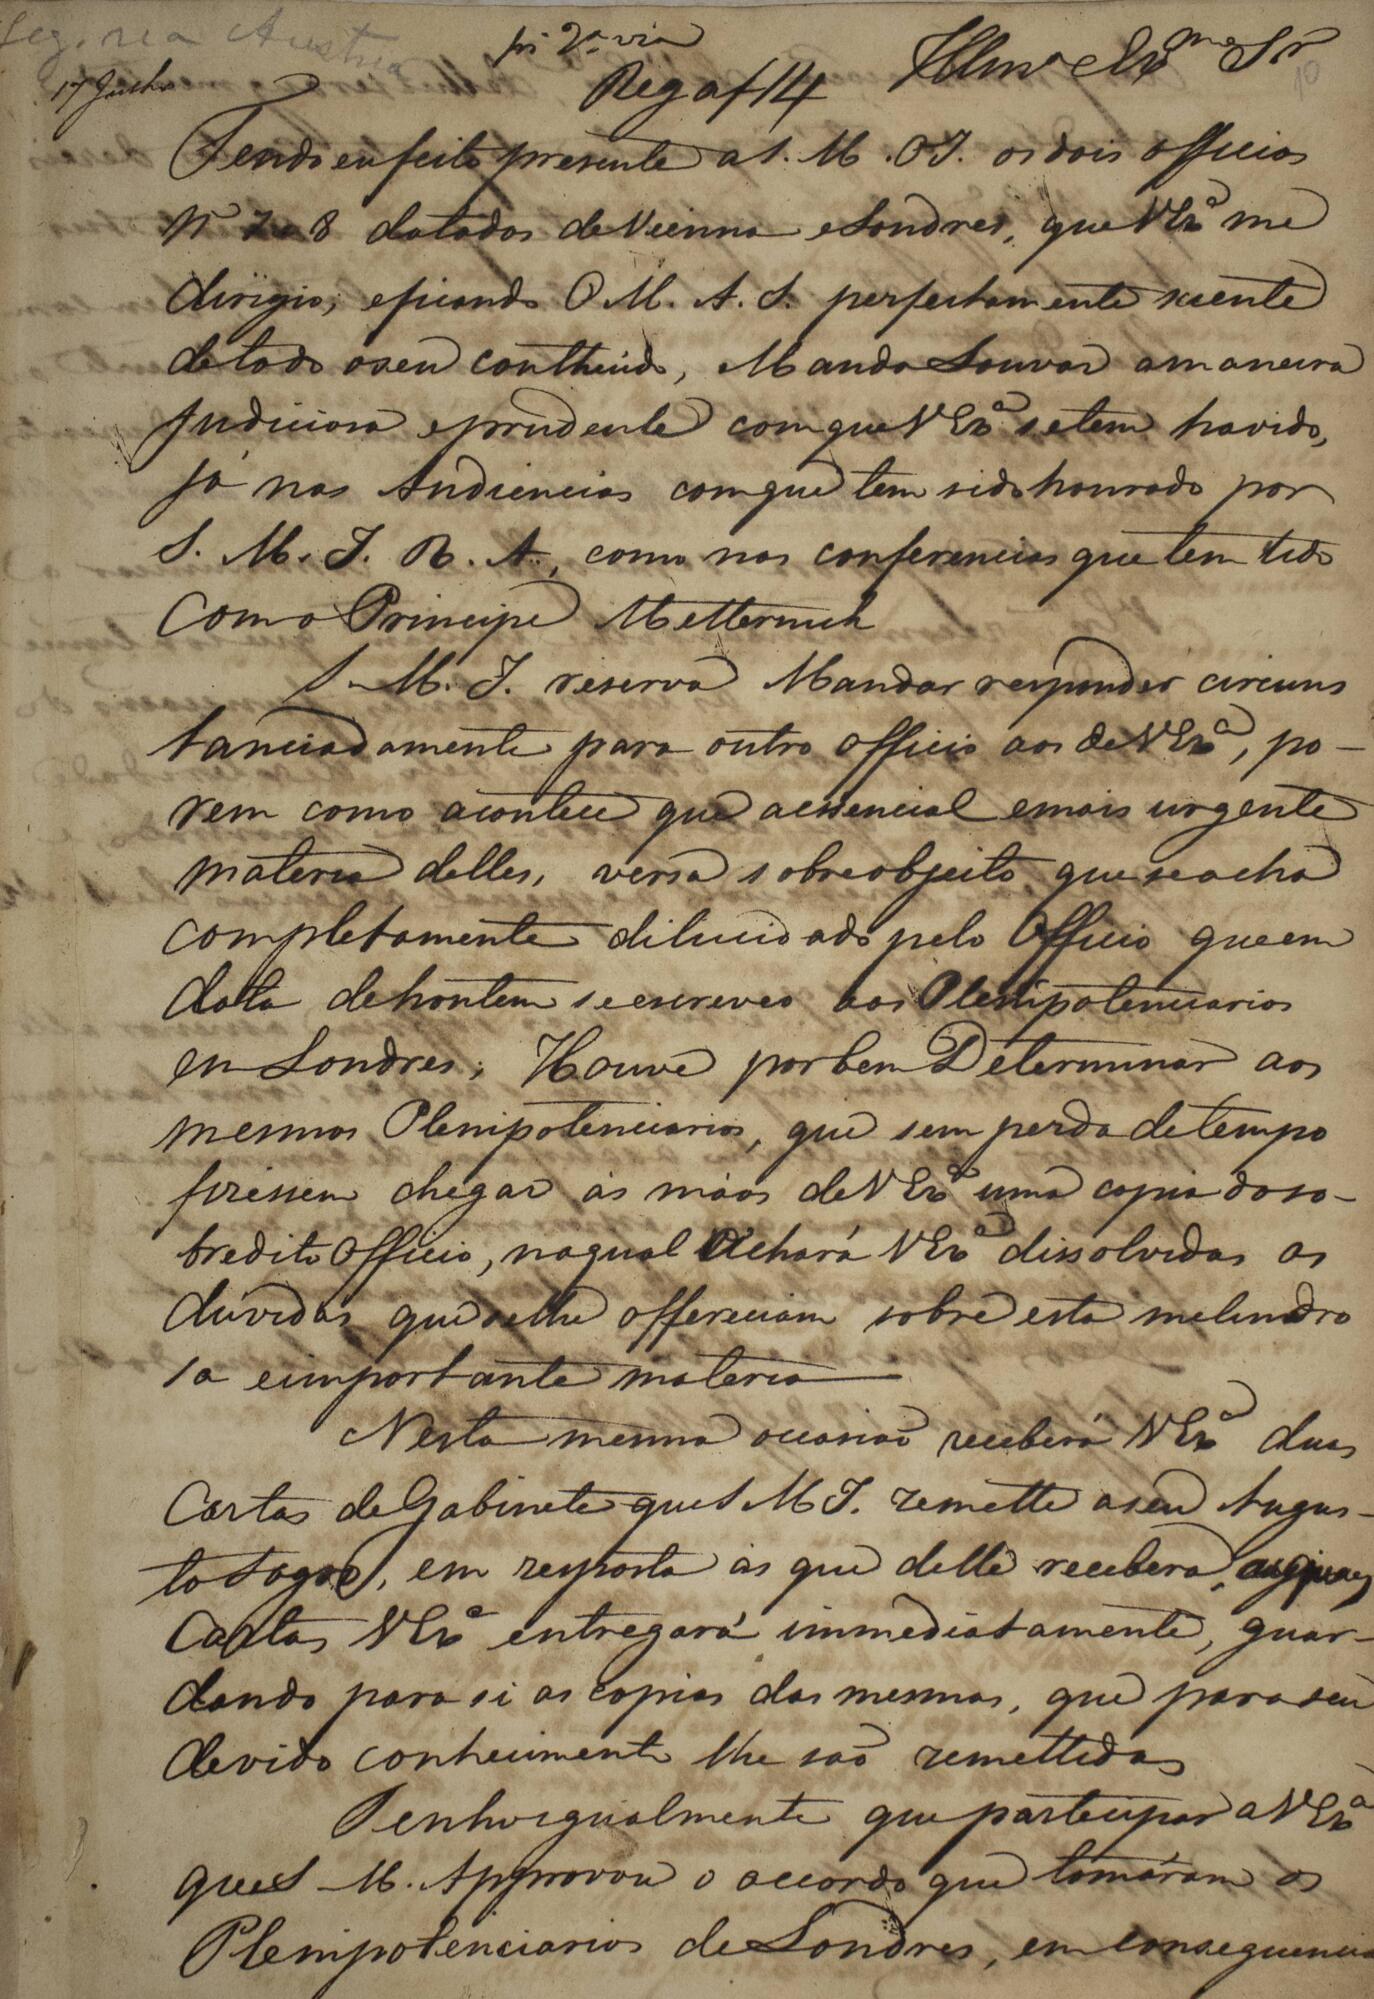 Leg. na Austria
17 Julho
pr 2ª via
Reg a f 14
Illmo e Exmo Sr
10
Tendo eu feito presente a S. M. O I. os dois officios
Nº 7 e 8 datados de Vienna e Londres, que V Exª me
dirigio; e ficando O M. A. S. perfeitamente sciente
de todo o seu contheudo, Manda Louvar a maneira
judiciosa e prudente com que V Exª se tem havido,
já nas Audiencias com que tem sido honrado por
S. M. I. R. A., como nas conferencias que tem tido
com o Principe Metternich
S. M. I. reserva Mandar responder circuns
tanciadamente para outro officio aos de V Exª, po-
rem como acontece que a essencial e mais urgente
materia delles, versa sobre objecto que se acha
completamente dilucidado pelo Officio que em
data de hontem se escreveo aos Plenipotenciarios
em Londres; Houve por bem Determinar aos
mesmos Plenipotenciarios, que sem perda de tempo
fizessem chegar ás mãos de V Exª uma copia do so-
bredito Officio, no qual Achará V Exª dissolvidas as
duvidas que se lhe offereciam sobre esta melindro
sa e importante materia
Nesta mesma occasiaõ receberá V Exª duas
Cartas de Gabinete que S M I. remette a seu Augus-
to Sogro, em resposta ás que delle recebera,
Cartas V Exª entregará immediatamente, guar-
dando para si as copias das mesmas, que para seu
devido conhecimento lhe saõ remettidas
Tenho igualmente que participar a V Exª
que S. M. Approvou o accordo que tomáram os
Plenipotenciarios de Londres, em consequencia